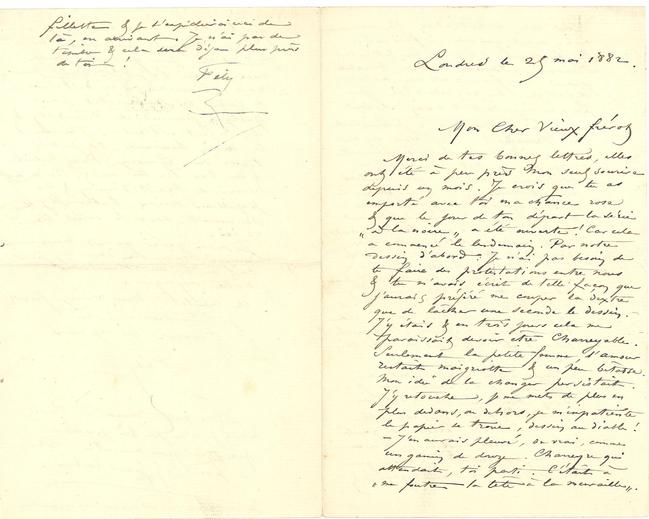 fillette & je t'expédierai ceci de
là, en arrivant. Je n'ai pas de
timbre & cela sera déjà plus près
de toi !
Fély
Londres le 25 mai 1882.
Mon Cher Vieux frérot
Merci de tes bonnes lettres, elles
ont été à peu près mon seul sourire
depuis un mois. Je crois que tu as
emporté avec toi ma chance rose
& que le jour de ton départ la série
„ à la noire „ a été ouverte ! Car cela
a commencé le lendemain. Par notre
dessin d'abord. Je n'ai pas besoin de
te faire des protestations entre nous
& tu m'avais écrit de telle façon que
j'aurais préféré me couper la dextre
que de lâcher une seconde le dessin. –
J'y étais & en trois jours cela me
paraissait devoir être Charreyable.
Seulement la petite femme d'amour
restait maigriotte & un peu bêtasse.
Mon idée de la changer persistait.
J'y retouche, je me mets de plus en
plus dedans, ou dehors, je m'impatiente
le papier se troue, dessin au diable !
– J'en aurais pleuré, vrai, comme
un gamin de douze. Charreyre qui
attendait, toi parti. C'était à
„ me foutre la tête à la muraille „.